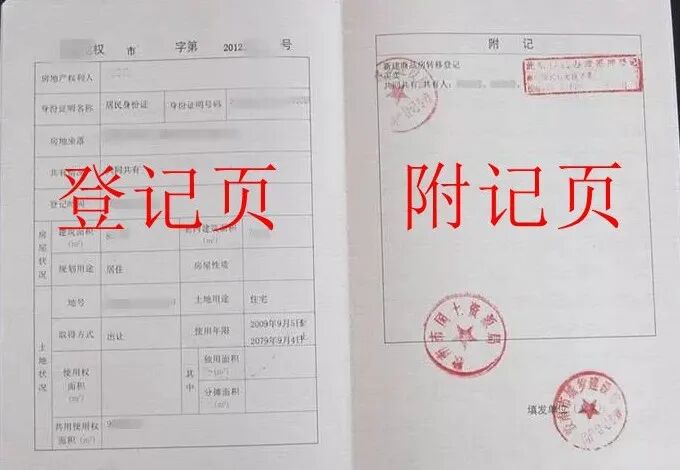 权 市 字第 2012 号
房地产权利人
身份证明名称 居民身份证 身份证明号码
房地坐落
共有情况 共同共有
登记时间
登记页
房屋状况
建筑面积(m²)
套内建筑面积(m²)
规划用途 居住 房屋性质
土地状况
地号 土地用途 住宅
取得方式 出让 使用年限 2009年9月5日至2079年9月4日
使用权面积(m²)
其中
独用面积(m²)
分摊面积(m²)
共用使用权面积(m²)
附记
新建商品房转移登记
买卖
共同共有,共有人:
附记页
市国土资源局
填发单位